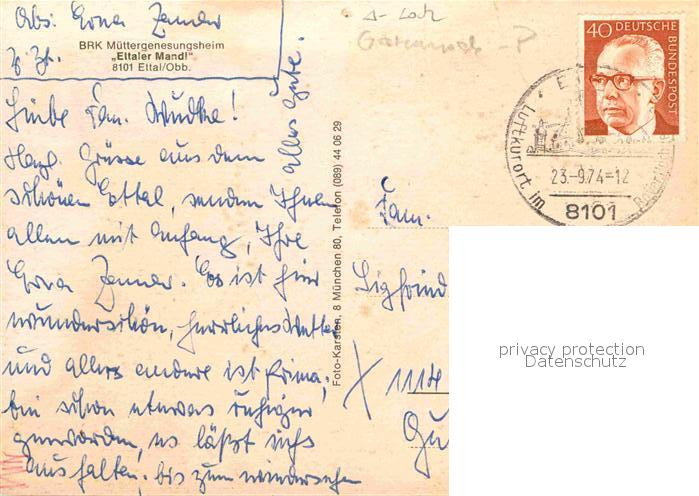 Abs: Erna Zander
z. Zt.
BRK Müttergenesungsheim
„Ettaler Mandl"
8101 Ettal/Obb.
Liebe Fam. Wudke!
Herzl. Grüsse aus dem
schönen Ettal, senden Ihnen
allen mit Anhang, Ihre
Erna Zander. Es ist hier
wunderschön, herrliches Wetter
und alles andere ist prima;
bin schon etwas ruhiger
geworden, es läßt sich
aushalten. bis zum wiedersehn
alles Gute.
Foto-Karsten, 8 München 80, Telefon (089) 44 06 29
40 DEUTSCHE BUNDESPOST
Luftkurort im
23.-9.74-12
8101
Fam.
Siegfried
1114
privacy protection
Datenschutz